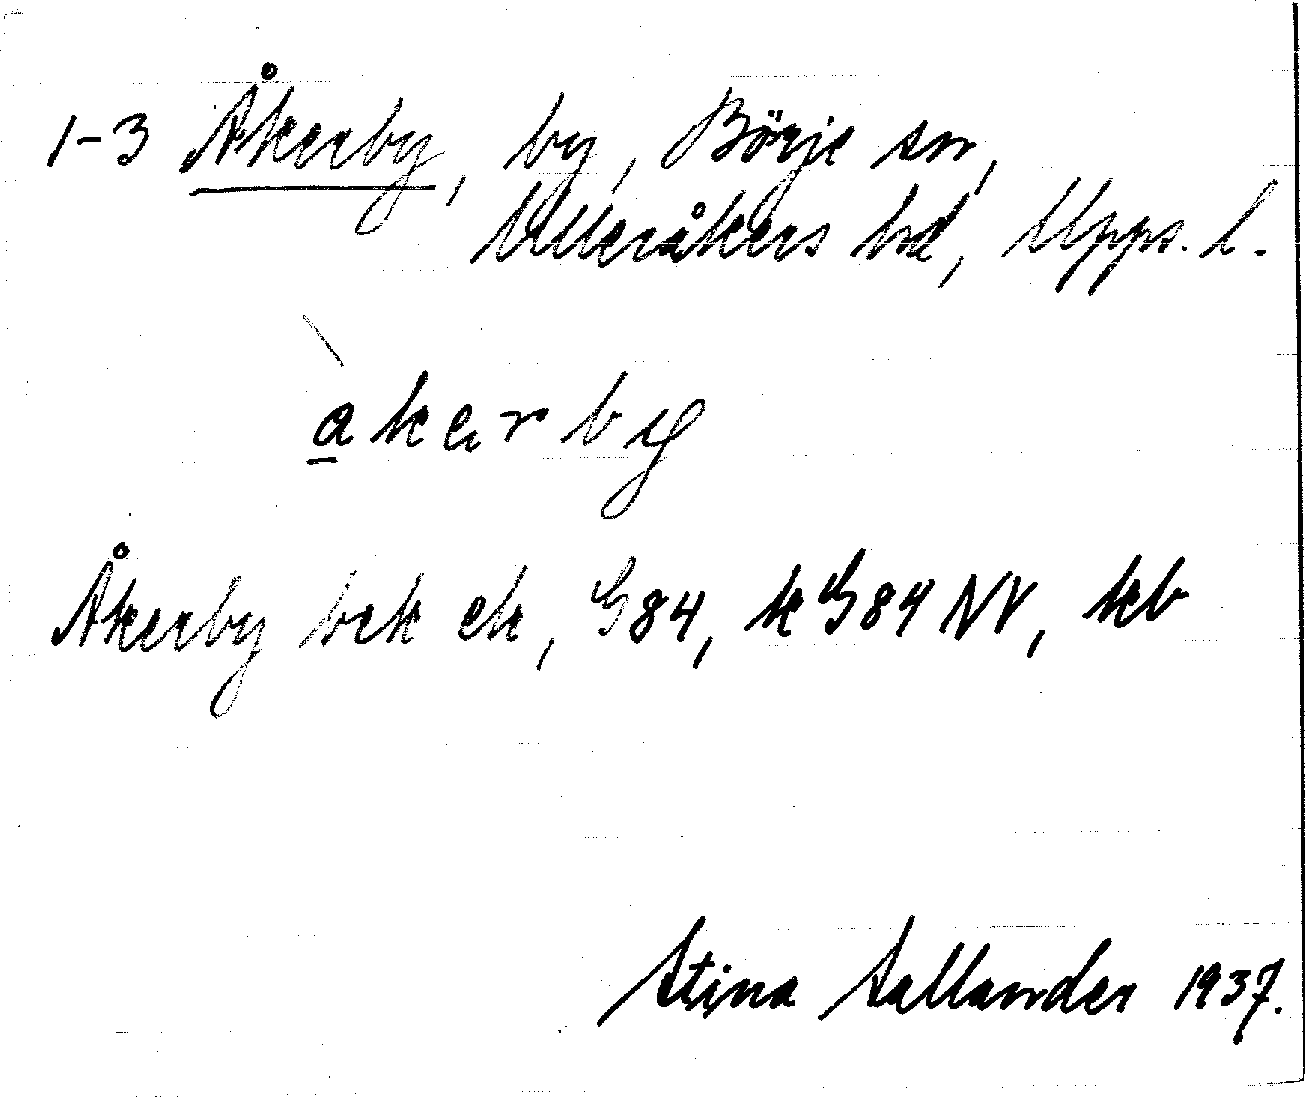 1-3 Åkerby, by, Börje sn,
Ulleråkers hd, Upps. l.
a̱kerby
Åkerby bek ek, G84, kG84 NV, kb
Stina Sellander 1937.